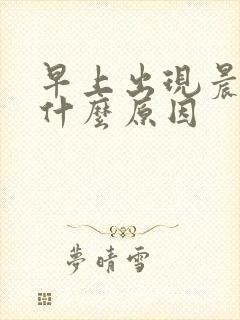 早上出現晨
什麼原因
夢晴雪